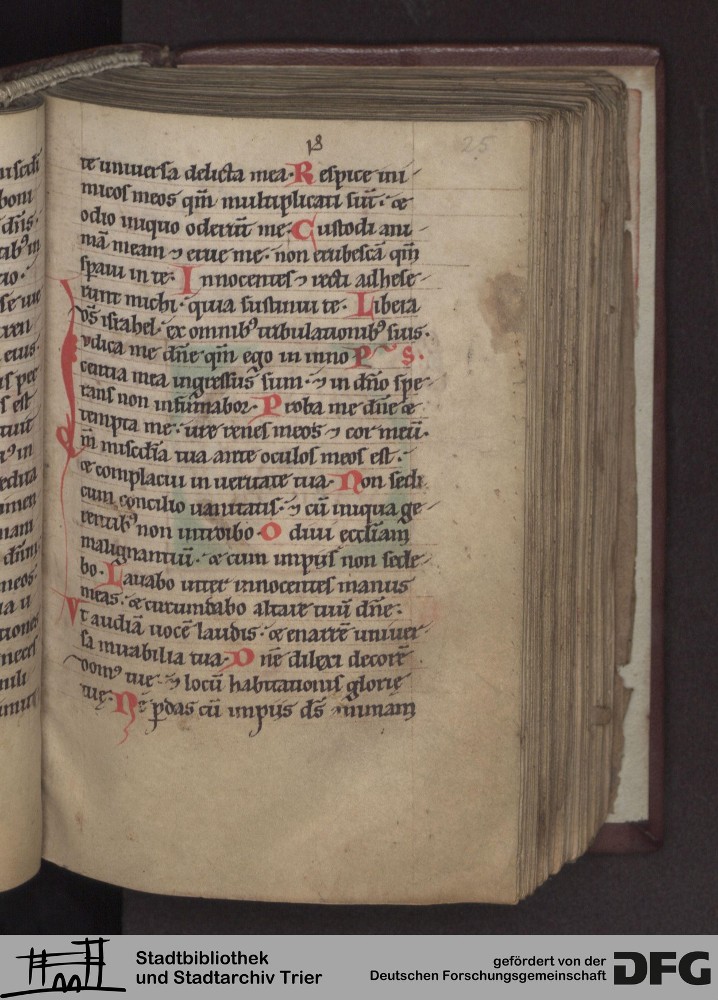 18
25
te uniuersa delicta mea· Respice ini
micos meos qm̄ multiplicati sūt· &
odio iniquo oderūt me· Custodi ani
mā meam ⁊ erue me· non erubescā qm̄
sꝑaui in te· Innocentes ⁊ recti adhese
runt michi· quia sustinui te· Libera
ds̄ israhel· ex omnib⁹ tribulationib⁹ suis·
Iudica me dn̄e qm̄ ego in inno P S·
centia mea ingressus sum· ⁊ in dn̄o spe
rans non infirmabor· Proba me dn̄e &
tempta me· ure renes meos ⁊ cor meū·
qm̄ miscd̄ia tua ante oculos meos est·
& complacui in ueritate tua· Non sedi
cum concilio uanitatis· ⁊ cū iniqua ge
rentib⁹ non introibo· Odiui eccl̄iam
malignantiū· & cum impiis non sede
bo· Lauabo inter innocentes manus
meas· & circumdabo altare tuū dn̄e·
Vt audiā uocē laudis· & enarrē uniuer
sa mirabilia tua· Dn̄e dilexi decorē
dom⁹ tuę· ⁊ locū habitationis glorię
tuę· Ne ꝑdas cū impiis ds̄ animam
Stadtbibliothek
und Stadtarchiv Trier
gefördert von der
Deutschen Forschungsgemeinschaft
DFG